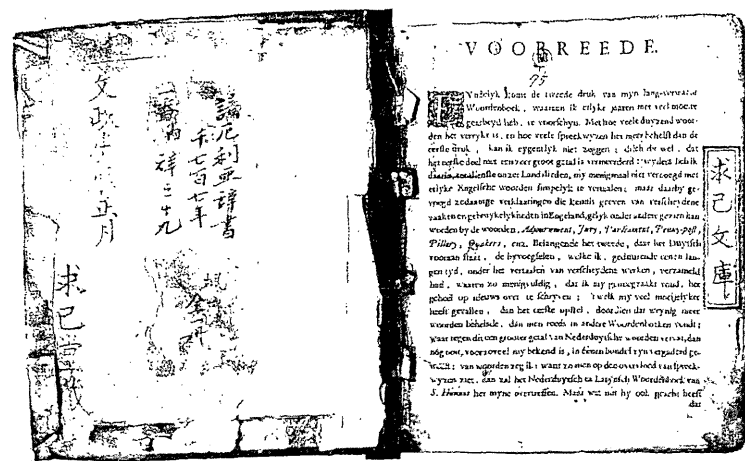 諳厄利亜辞書
千七百七年
文政
正月
求己堂蔵
VOORREEDE.
Yndelyk komt de tweede druk van myn lang-verwacht
Woordenboek, waaraan ik etlyke jaaren met veel moeite
gearbeyd heb, te voorschyn. Met hoe veele duyzend woor-
den het verrykt is, en hoe veele spreekwyzen het meer behelst dan de
eerste druk, kan ik eygentlyk niet zeggen; doch de wel, dat
het eerste deel met een zeer groot getal is vermeerderd: wyders heb ik
daarin, ten dienste onzer Landslieden, my menigmaal niet vernoegd met
etlyke Engelsche woorden simpelyk te vertaalen; maar daarby ge-
voegd zodanige verklaaringen die kennis geeven van verscheydene
zaaken en gebruykelykheden in Engeland, gelyk onder andere gezien kan
worden by de woorden, Adjournment, Jury, Parliament, Penny-post,
Pillory, Quakers, enz. Belangende het tweede, daar het Duytsch
vooraan staat, de byvoegselen, welke ik, geduurende eenen lan-
gen tyd, onder het vertaalen van verscheydene werken, verzameld
had, waaren zo menigvuldig, dat ik my genoodzaakt vond, het
geheel op nieuws over te schryven; 't welk my veel moeijelyker
heeft gevallen, dan het eerste opstel, doordien dat weynig meer
woorden behelsde, dan men reeds in andere Woordenboeken vondt;
waar tegen dit een grooter getal van Nederduytsche woorden vervat, dan
nóg ooit, voor zo veel my bekend is, in éénen bundel zyn vergaderd ge-
weest: van woorden zeg ik; want zo men op den overvloed van spreek-
wyzen ziet, dan zal het Nederduytsch en Latynsch Woordenboek van
S. Hannot het myne overtreffen. Maar wat nut hy ook geacht heeft
dat
求己文庫